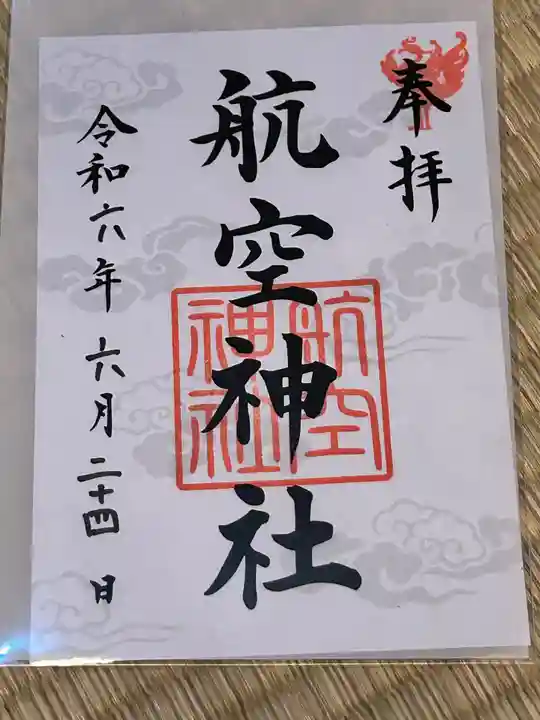 奉拝
航空神社
航空
神社
令和六年 六月二十四日